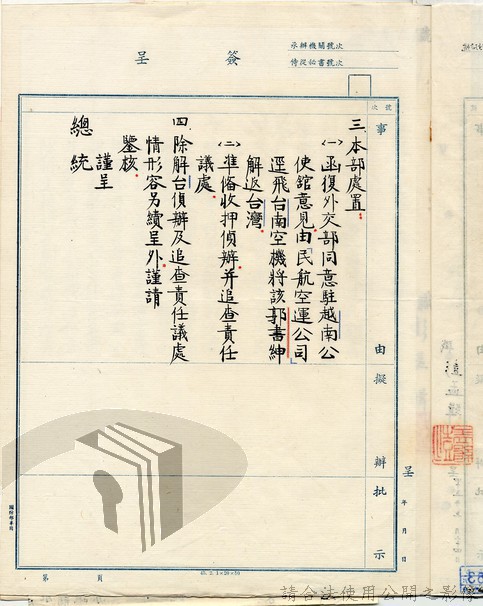 簽呈
承辦機關號次
侍從秘書號次
號次
事
由擬
辦批
示
三、本部處置:
㈠函復外交部同意駐越南公
使館意見由「民航空運公司」
逕飛台南空機將該郭書紳
解返台灣。
㈡準備收押偵辦并追查責任
議處。
四、除解台偵辦及追查責任議處
情形容另續呈外謹請
鑒核。
謹呈
總統
呈
年
月
日
第 頁
請合法使用公開之影像